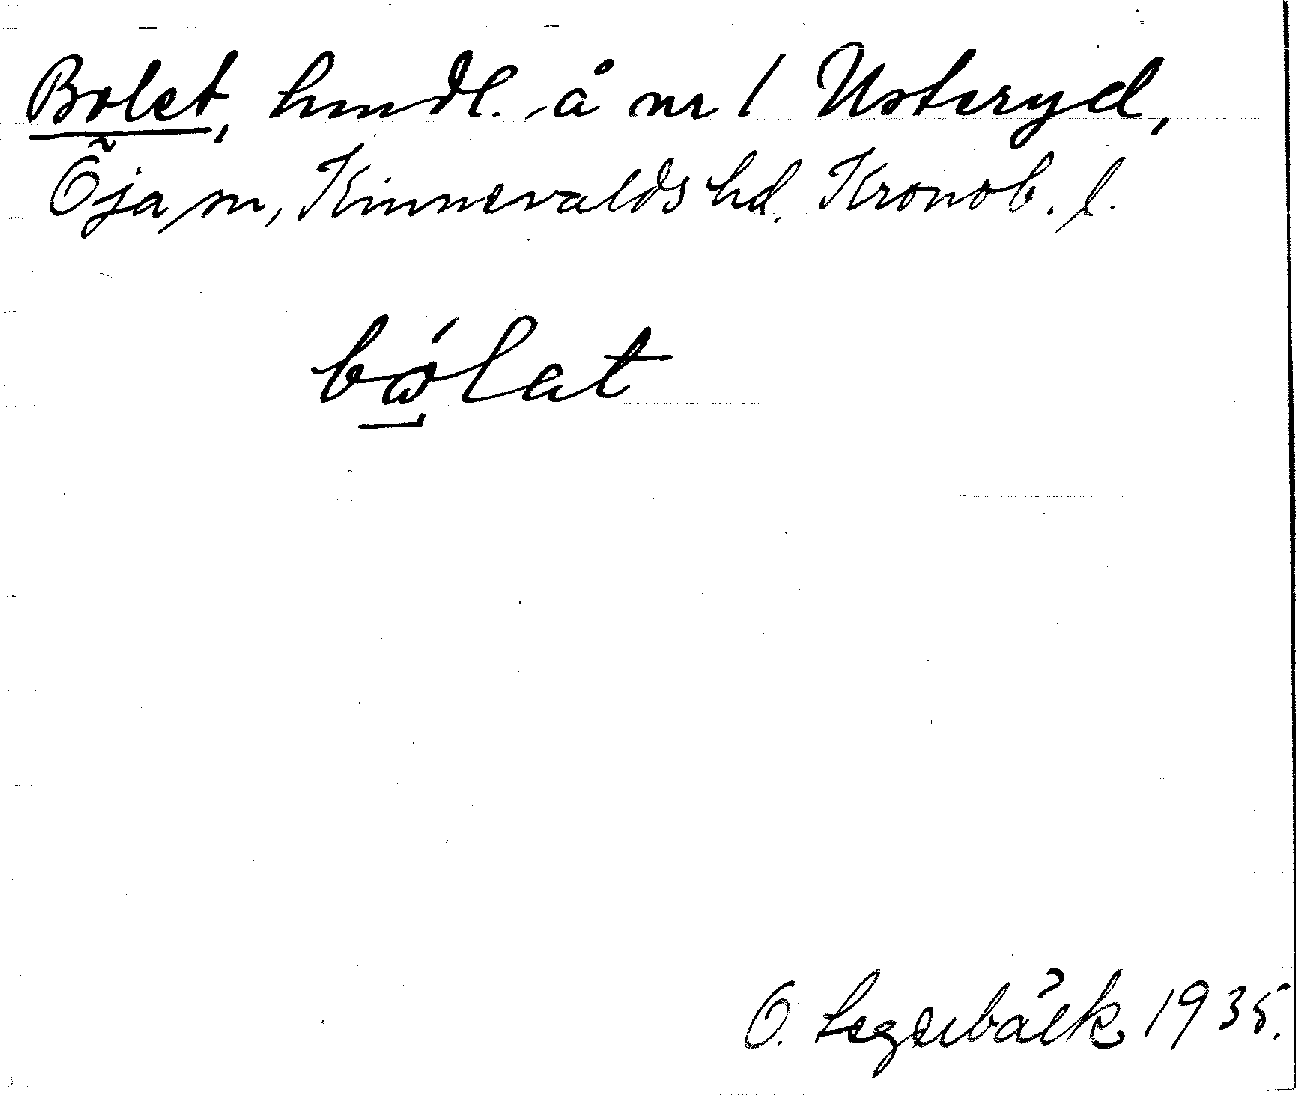 Bolet, hmdl. å nr 1 Notteryd,
Öja sn, Kinnevalds hd. Kronob. l.
bólat
O. Legerbäck 1935.